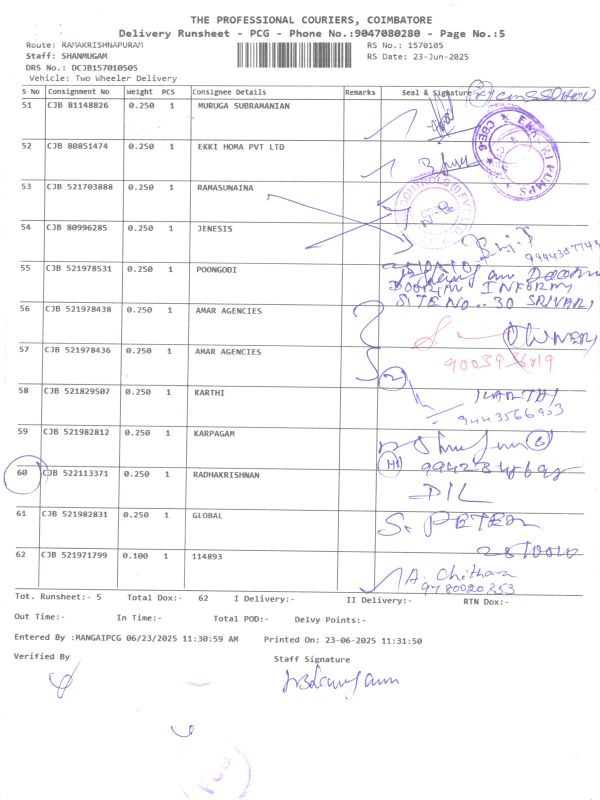 THE PROFESSIONAL COURIERS, COIMBATORE
Delivery Runsheet - PCG - Phone No.:9047080280 - Page No.:5
Route: RAMAKRISHNAPURAM RS No.: 1570105
Staff: SHANMUGAM RS Date: 23-Jun-2025
DRS No.: DCJB157010505
Vehicle: Two Wheeler Delivery
S No Consignment No Weight PCS Consignee Details Remarks Seal & Signature
51 CJB 81148826 0.250 1 MURUGA SUBRAMANIAN
52 CJB 80851474 0.250 1 EKKI HOMA PVT LTD
53 CJB 521703888 0.250 1 RAMASUNAINA
54 CJB 80996285 0.250 1 JENESIS
55 CJB 521978531 0.250 1 POONGODI
DOOR IN INFORM
SITE NO.. 30 SRIVARI
56 CJB 521978438 0.250 1 AMAR AGENCIES
OWNER
57 CJB 521978436 0.250 1 AMAR AGENCIES
2
58 CJB 521829507 0.250 1 KARTHI KARTHI
9443566953
59 CJB 521982812 0.250 1 KARPAGAM
60 CJB 522113371 0.250 1 RADHAKRISHNAN
DIL
61 CJB 521982831 0.250 1 GLOBAL S. PETER
62 CJB 521971799 0.100 1 114893
A. Chithra
9480020353
Tot. Runsheet:- 5 Total Dox:- 62 I Delivery:- II Delivery:- RTN Dox:-
Out Time:- In Time:- Total POD:- Delvy Points:-
Entered By :MANGAIPCG 06/23/2025 11:30:59 AM Printed On: 23-06-2025 11:31:50
Verified By Staff Signature